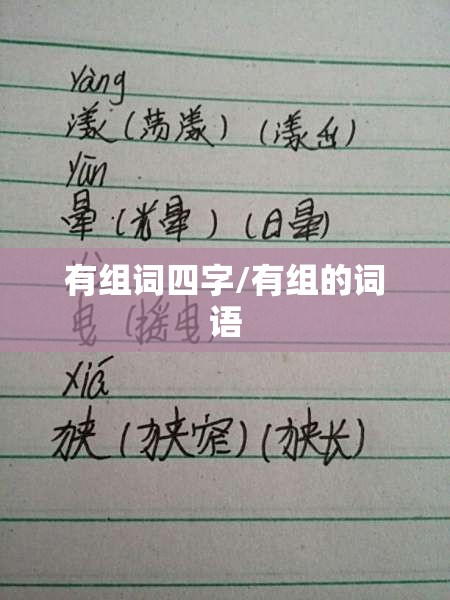 yàng
漾（荡漾）（漾出）
yūn
晕（光晕）（日晕）
有组词四字/有组的词
语
xiá
狭（狭窄）（狭长）